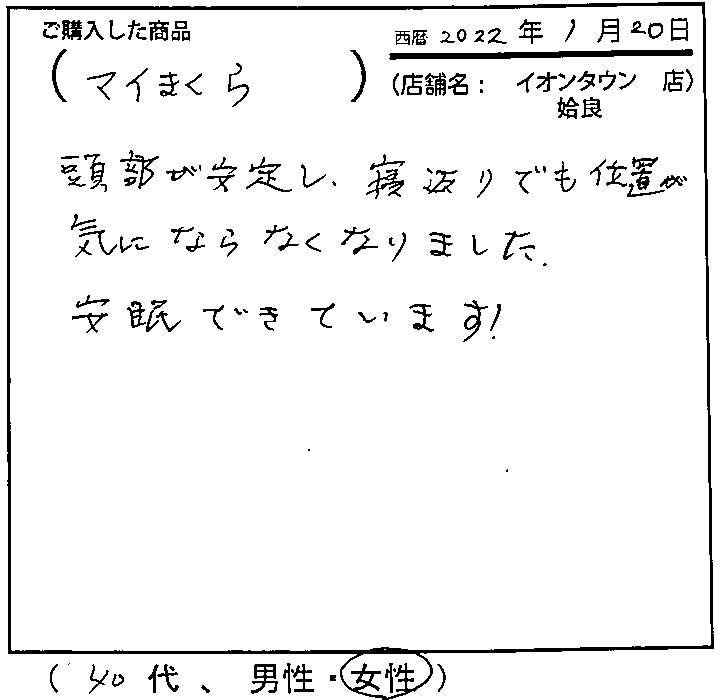 ご購入した商品
西暦 2022 年 1 月 20 日
(マイまくら)
(店舗名： イオンタウン 店)
姶良
頭部が安定し、寝返りでも位置が
気にならなくなりました.
安眠できています!
( 40 代、男性・女性)